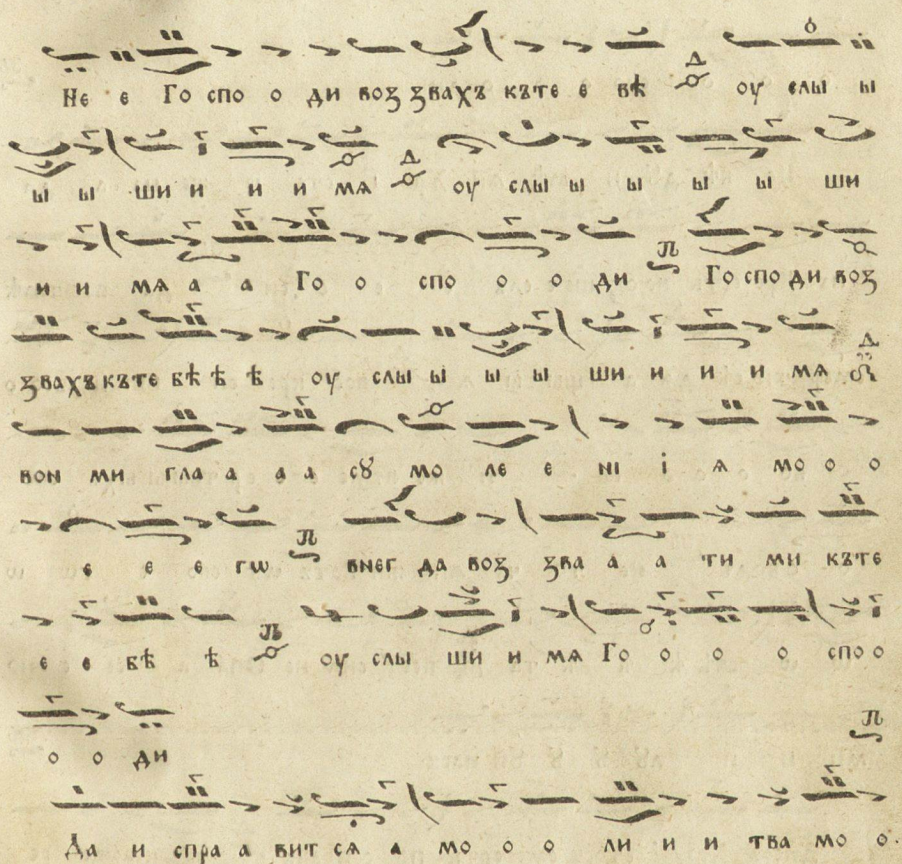 Не е Го спо о ди воз звахъ къте е бѣ оу слы ы
ы ы ши и и и мѧ оу слы ы ы ы ы ы ши
и и мѧ а а Го о спо о о ди Го спо ди воз
звахъ къте бѣ ѣ ѣ оу слы ы ы ы ши и и и мѧ
вон ми гла а а а сꙋ мо ле е ні і ѧ мо о о
е е е гѡ внег да воз зва а а ти ми къте
е е бѣ ѣ оу слы ши и мѧ Го о о о спо о
о о ди
Да и спра а вит сѧ а мо о о ли и и тва мо о